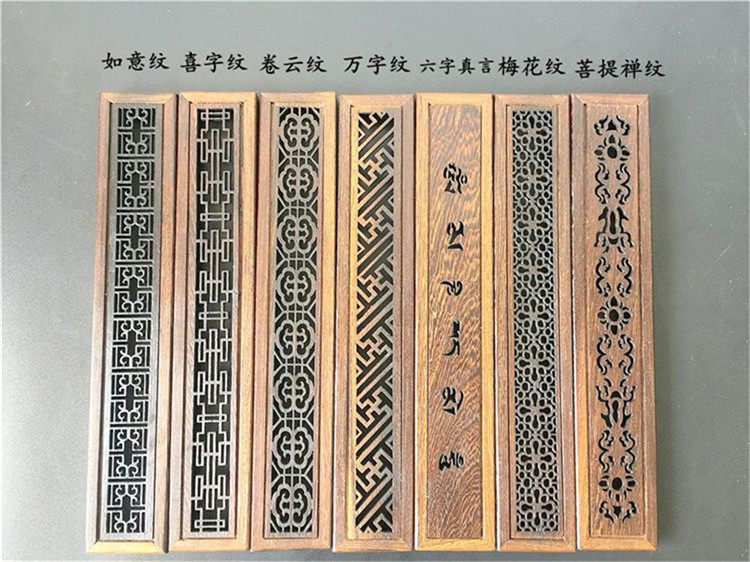 如意纹 喜字纹 卷云纹 万字纹 六字真言 梅花纹 菩提禅纹